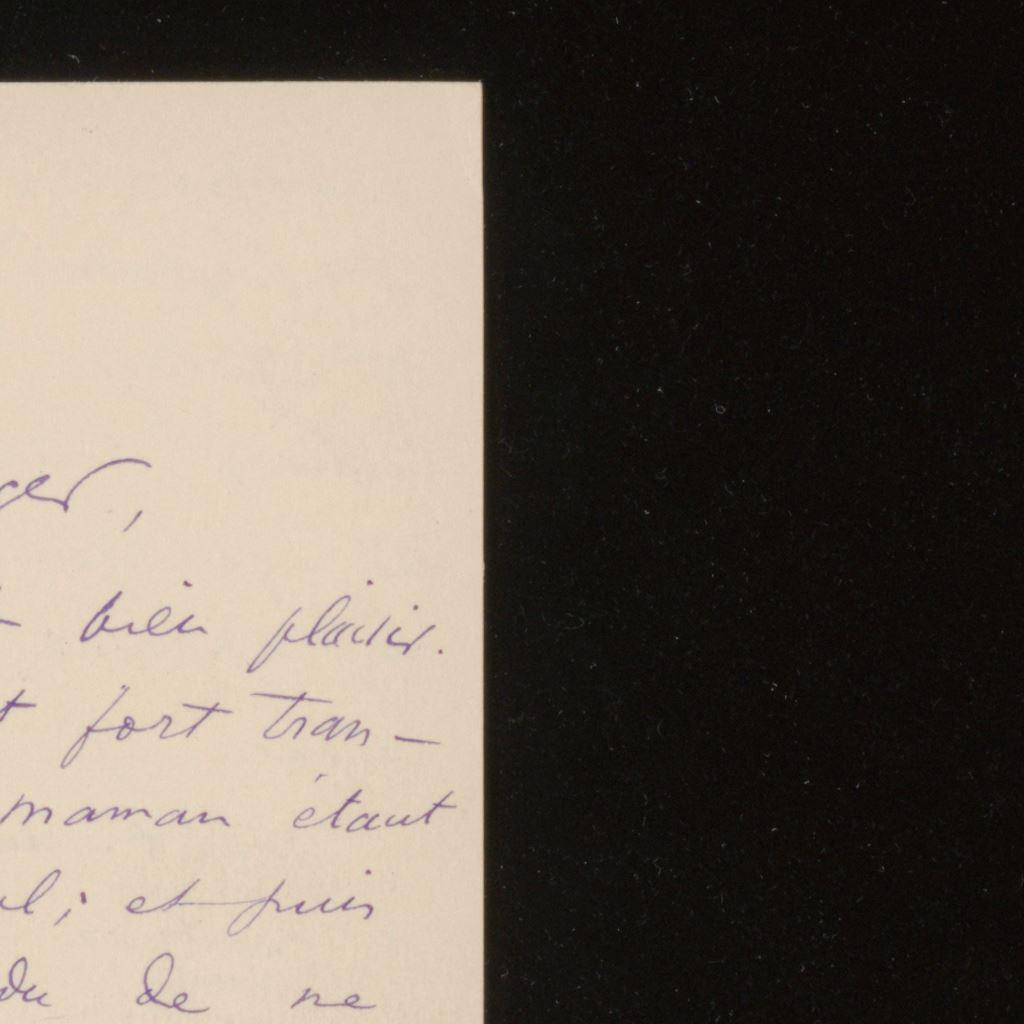 ger,
bien plaisir.
t fort tran-
maman étant
l; et puis
du de ne